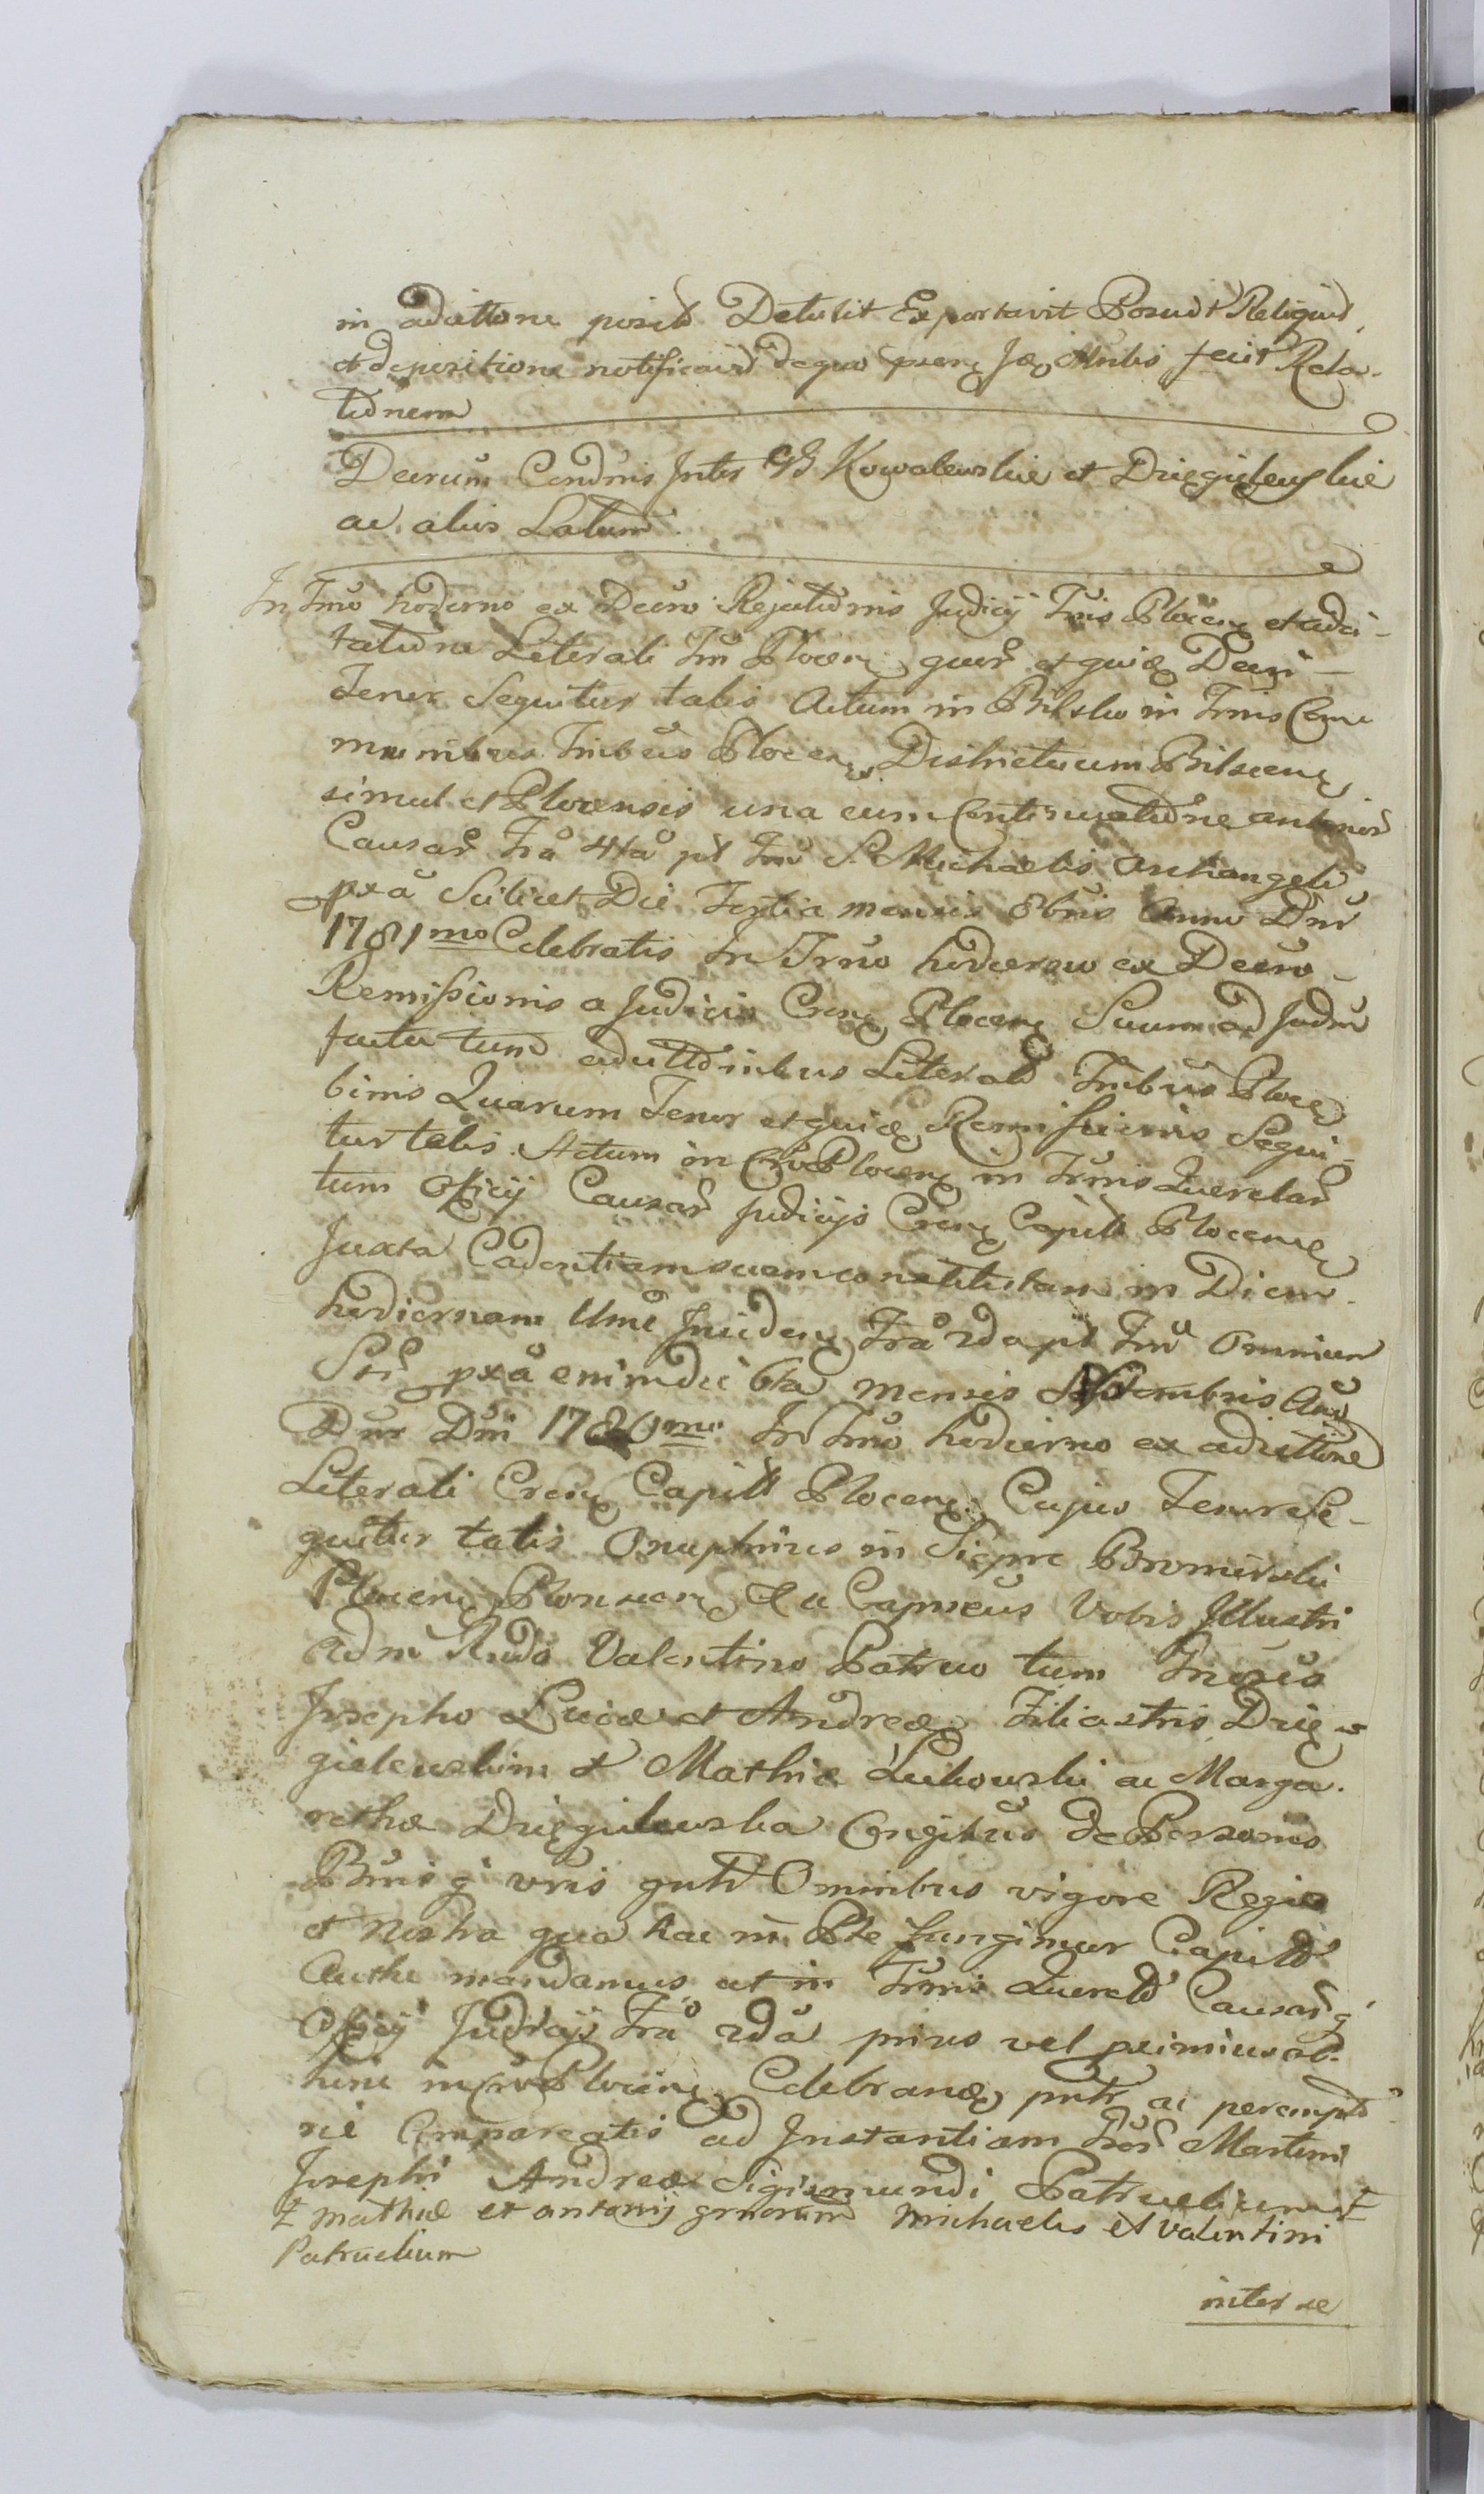 in adcittone posit Detulit Exportavit Posuit Reliquit
et depositione notificavit de quo praeng Jos Mntis fecit Rela-
tionem
Decrum Condnis Inter GG Kowalewskie et Dziegielewskie
ac alios Latum
In Tmo hodierno ex Decro Rejectionis Judicij Tris Plocen et adci-
tatione Literali Tri Plocen quor et quia Decri
Tenor Sequitur talis Actum in Bilsko in Trnis Com
munibus Tribus Plocen Districtuum Bilscen
simul et Plocensis una cum Continuatione anterior
Causar Fra 4ta pt Tm S. Michaelis Archangeli
pxa Scilicet Die Tertia mensis 8bris Anno Dnr
1781mo Celebratis In Trno hodierno ex Decro
Remissionis a Judicio Cren Plocen Suum ad Judm
facta tum adcittonibus Literal Tribus Ploce
binis Quarum Tenor et quia Remissionis Sequi-
tur talis. Actum in Cro Plocen in Trnis Querelar
tum Officij Causar Judicijs Cren Capit Plocenae
Juxta Cadentiam suam constitutam in Diem
hodiernam Ulme Inciden Fra 2da pt Tm Omnium
Str pxa enim die 6ta mensis Novembris Ano
Dnr Dni 1780mo In Trno hodierno ex adcittone
Literali Cren Capitt Plocen Cujus Tenor Se-
quitur talis Onuphrius in Siepre Bromirski
Plocen Plonscen &a Capneus Vobis Illustri
Adm Rndo Valentino Patruo tum Gnosis
Josepho Lucae et Andreae Filiastris Dzie-
gielewskim et Mathia Lukowski ac Marga-
retha Dziegielewska Conjibus de Personis
Bnis q vris gnth Omnibus vigore Regia
et Nostra qua hac in Pte fungimur Capit
Authe mandamus ut in Trnis Querel Causar q
Officij Judicijs Fra 2da prius vel primius ab
hinc in Cro Plocen Celebran pntr ac perempto
rie Compareatis ad Instantiam Gnor Martini
Josephi Andreae Sigismundi Patruelium #
# Mathiae et antonij grnorum Michaelis et Valentini
Patruelium
inter se